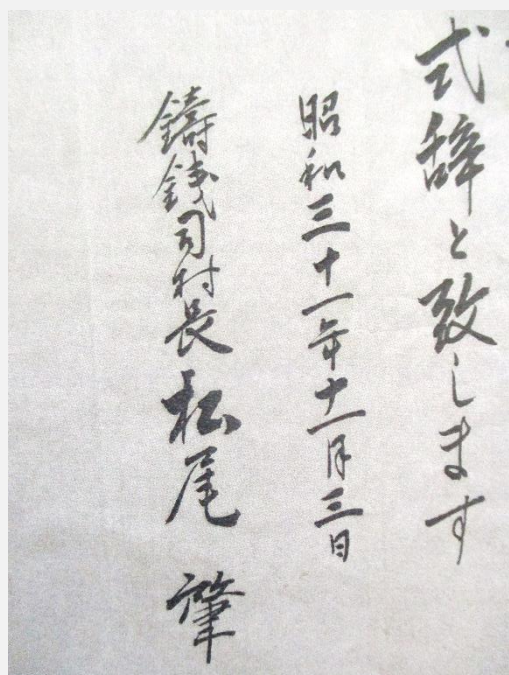 式辞と致します
昭和三十一年十一月三日
鋳銭司村長 松尾 肇